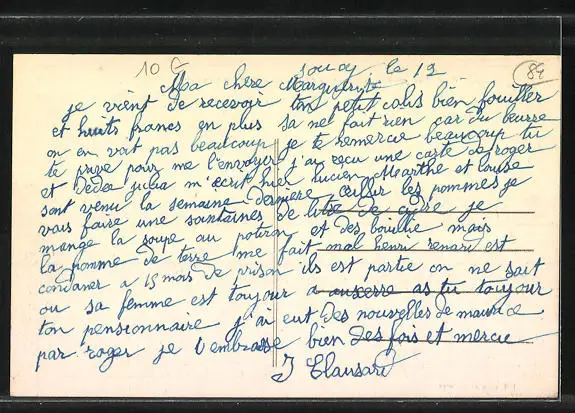 10 F
84
soucy le 12
Ma chère Marguerite
je vient de recevoir ton petit colis bien fouiller
et huits francs en plus sa ne fait rien car du beurre
on en voit pas beaucoup je te remercie beaucoup tu
te prive pour me l'envoyer j'ai reçu une carte de roger
et Deda julia m'ecrit hier lucien Marthe et louise
sont venu la semaine dernière ceuillir les pommes je
vais faire une sointaines de litre de cidre je
mange la soupe au potiron et des bouillie mais
la pomme de terre me fait mal henri renard est
condaner a 15 mois de prison ils est partie on ne sait
ou sa femme est toujour a auxerre as tu toujour
ton pensionnaire j'ai eut des nouvelles de maurice
par roger je t'embrasse bien des fois et mercie
J